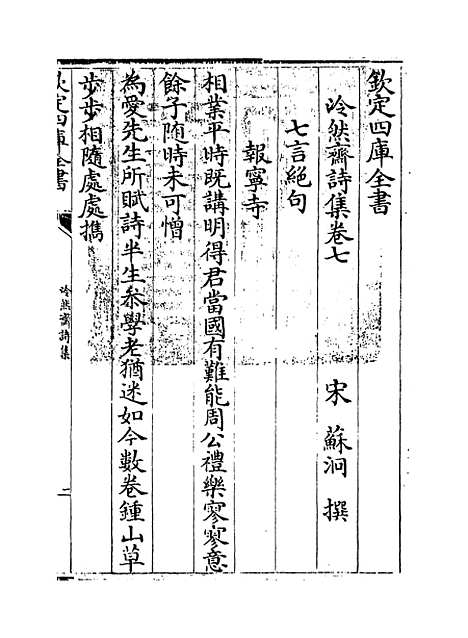 欽定四庫全書
泠然齋詩集卷七
宋 蘇泂 撰
七言絕句
報寧寺
相業平時既講明得君當國有難能周公禮樂寥寥意
餘子随時未可憎
為愛先生所賦詩半生叅學老猶迷如今數卷鍾山草
步步相隨處處擕
欽定四庫全書
泠然齋詩集